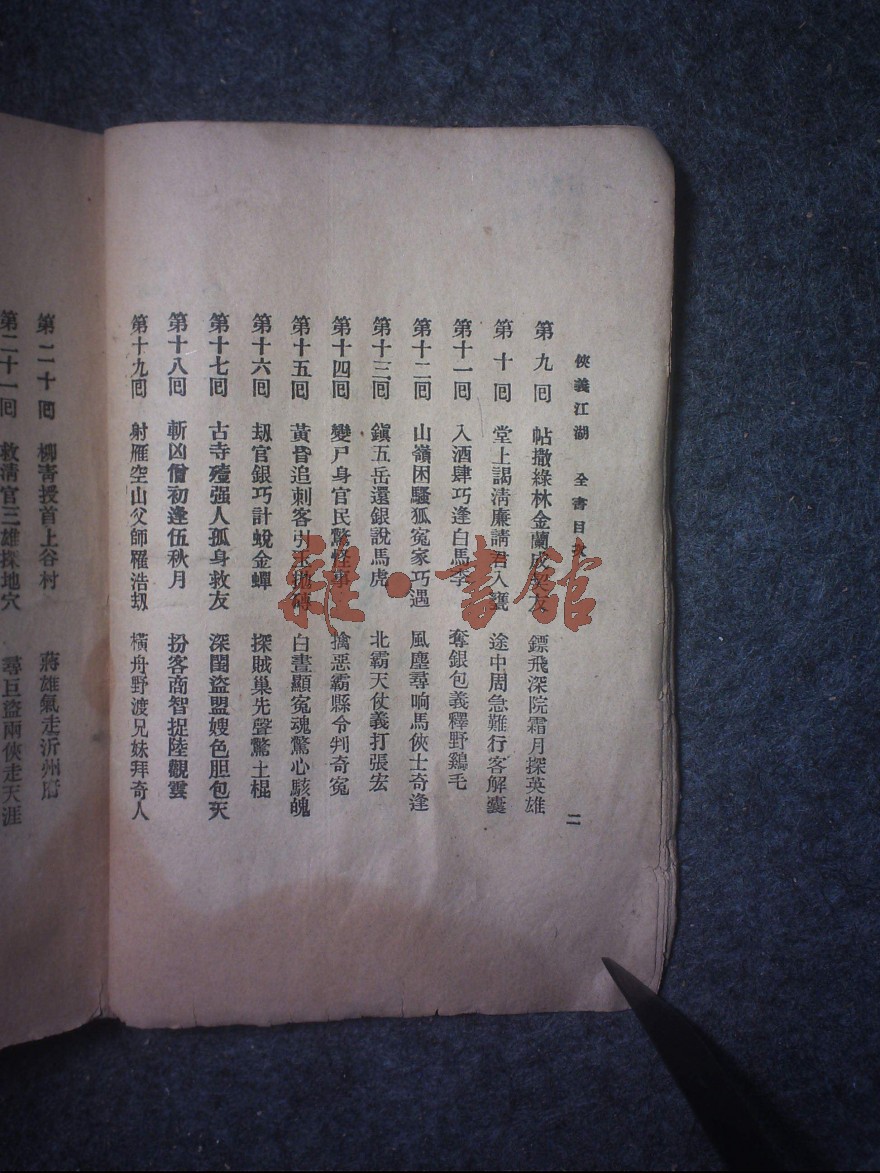 俠義江湖 全書目次 二
第九回 帖撒綠林金蘭成契友 鏢飛深院霜月探英雄
第十回 堂上謁淸廉請君入甕 途中周急難行客解囊
第十一回 入酒肆巧逢白馬李 奪銀包義釋野鷄毛
第十二回 山嶺困騷狐冤家巧遇 風塵尋响馬俠士奇逢
第十三回 鎭五岳還銀說馬虎 北霸天仗義打張宏
第十四回 變尸身官民驚怪事 擒惡霸縣令判奇冤
第十五回 黃昏追刺客引玉抛磚 白晝顯冤魂驚心駭魄
第十六回 刼官銀巧計蛻金蟬 探賊巢先聲驚土棍
第十七回 古寺殪强人孤身救友 深閨盜盟嫂色胆包天
第十八回 斬凶僧初逢伍秋月 扮客商智捉陸觀雲
第十九回 射雁空山父師罹浩刼 橫舟野渡兄妹拜奇人
第二十回 柳靑授首上谷村 蔣雄氣走沂州府
第二十一回 救淸官三雄探地穴 尋巨盜兩俠走天涯
雜·書館